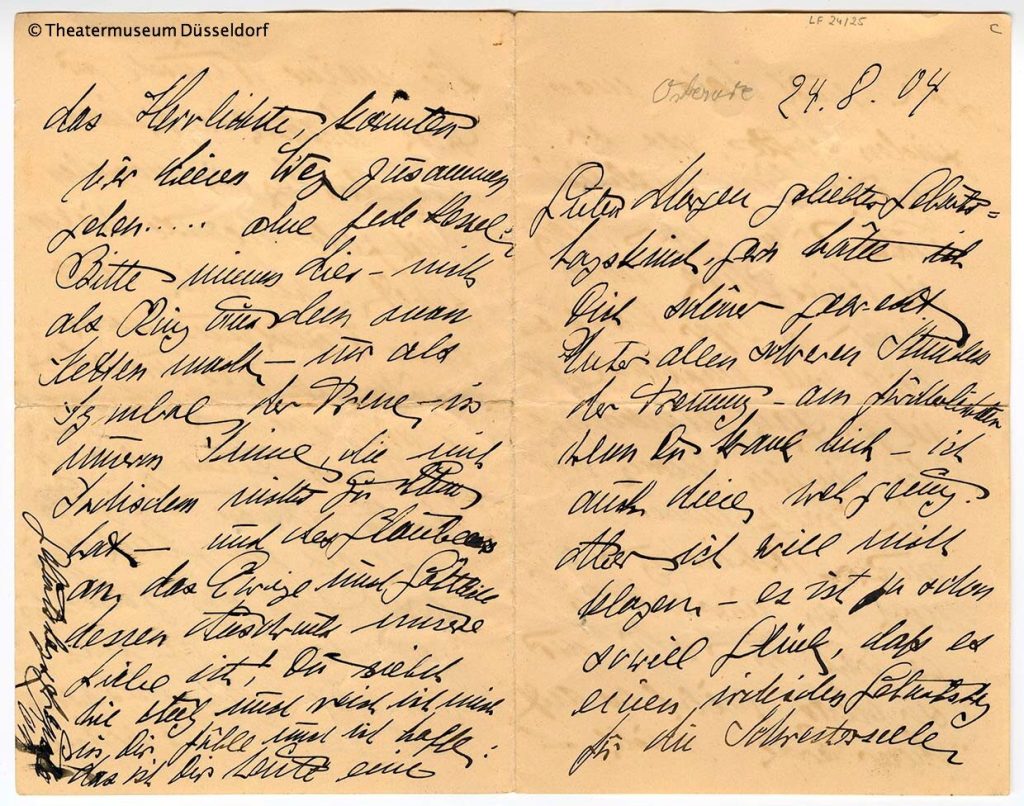 © Theatermuseum Düsseldorf
LF 24/25
C
24. 8. 04
Guten Morgen geliebtes Geburts=
tagskind, gern hätte ich
Dich schöner geweckt
Unter allen schweren Stunden
der Trennung – am
wenn Du krank bist – ich
auch diese weh genug.
Aber ich will nicht
klagen – es ist ja schon
soviel Glück, daß es
einen irdischen Geburtstag
für die Schwesterseele
das Herrlichste, könnten
wir diesen Weg zusammen
gehen..... ohne jede
Bitte nimm dies – nicht
als Ring aus dem man
Ketten macht – nur als
Symbol der Treue – in
unserm Sinne, die mit
Irdischem nichts zu thun
hat – und des Glaubens
an das Ewige und Göttliche
dessen Ausdruck unsere
Liebe ist, Du siehst
wie und reich ich mich
in Dir fühle und ich hoffe,
das ist Dir heute eine